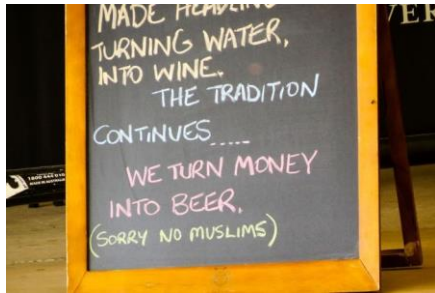 MADE
TURNING WATER,
INTO WINE.
THE TRADITION
CONTINUES.....
WE TURN MONEY
INTO BEER.
(SORRY NO MUSLIMS)